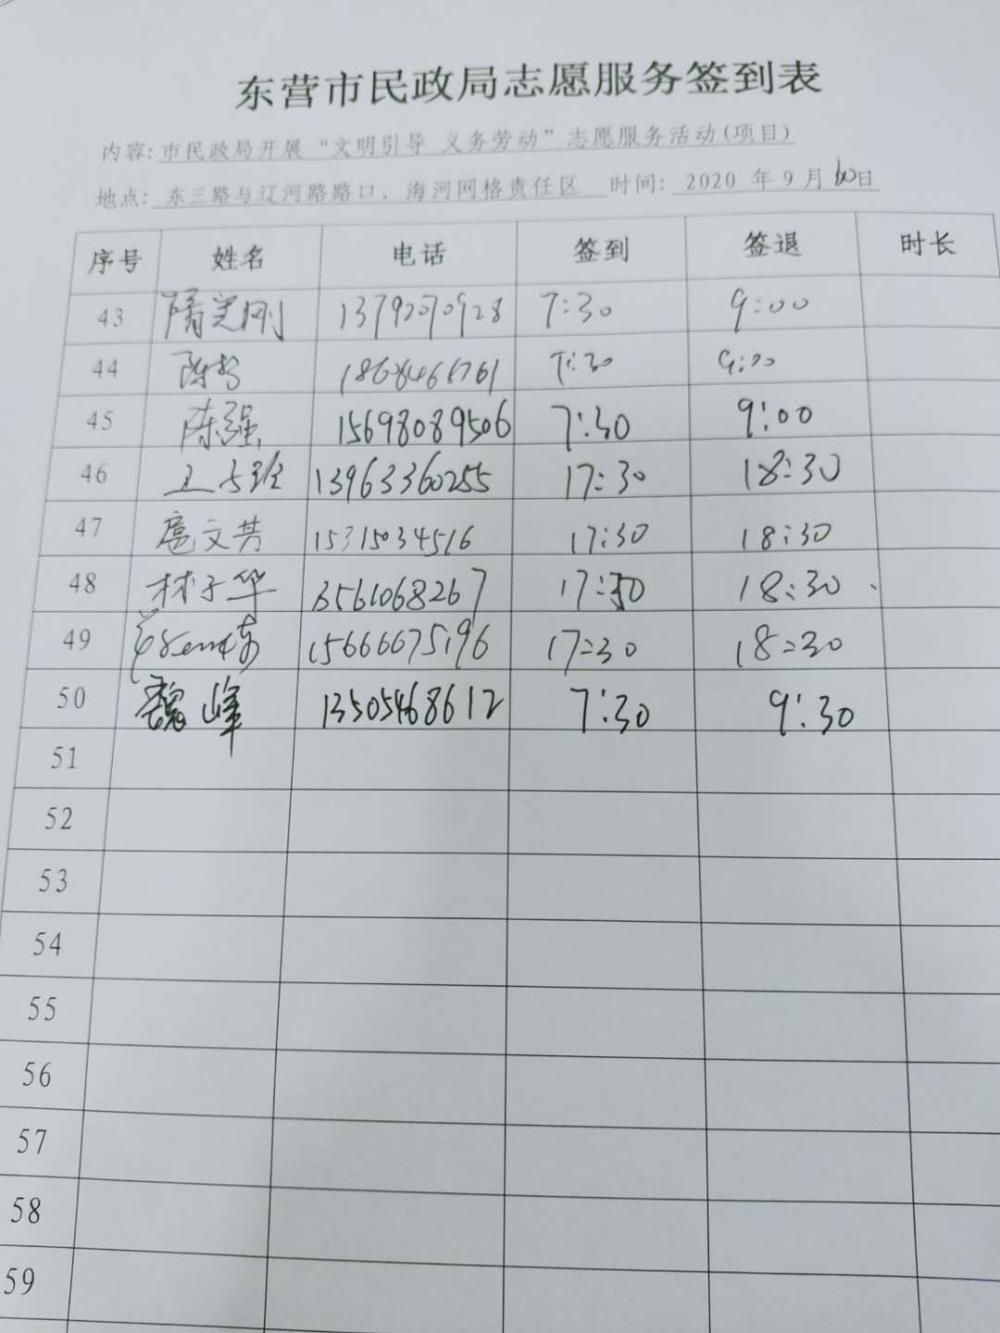 东营市民政局志愿服务签到表
内容: 市民政局开展“文明引导 义务劳动”志愿服务活动(项目)
地点: 东三路与辽河路路口、海河网格责任区 时间: 2020 年 9 月 日
序号 姓名 电话 签到 签退 时长
43 隋 刚 13792070928 7:30 9:00
44 陈 7:30 9:00
45 陈强 15698089506 7:30 9:00
46 13963360255 17:30 18:30
47 扈文芳 15315034516 17:30 18:30
48 林子华 13561068267 17:30 18:30
49 15666675196 17:30 18:30
50 魏峰 13505468612 7:30 9:30
51
52
53
54
55
56
57
58
59